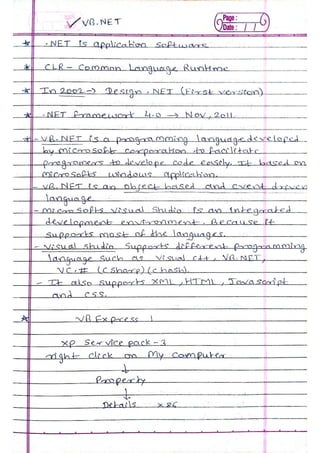 ✓ VB.NET
Page:
Date: / /
* .NET is application software
* CLR - Common Language Runtime
* In 2002 → Design .NET (First version)
* .NET framework 4.0 → Nov, 2011.
* - VB.NET is a programming language developed
by microsoft corporation to facilitate
programers to develope code easily. It based on
microsofts windows application.
- VB.NET is an object based and event driven
language.
- microsofts visual studio is an integrated
development environment. Because it
supports most of the languages.
- visual studio supports different programming
language such as visual c++, VB.NET,
VC.# (C sharp) (c hash).
- It also supports XML, HTML, Javascript
and CSS.
* VB Express 1
xp service pack - 3
right click on My Computer
↓
Property
↓
Details x86